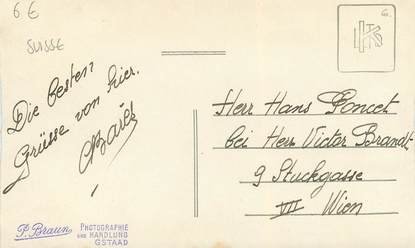 6 €
SUISSE
Die besten
Grüsse von hier.
Herr Hans Poncet
bei Herr Victor Brandt
9 Stuckgasse
VII Wien
P. Braun
PHOTOGRAPHIE
UND HANDLUNG
GSTAAD